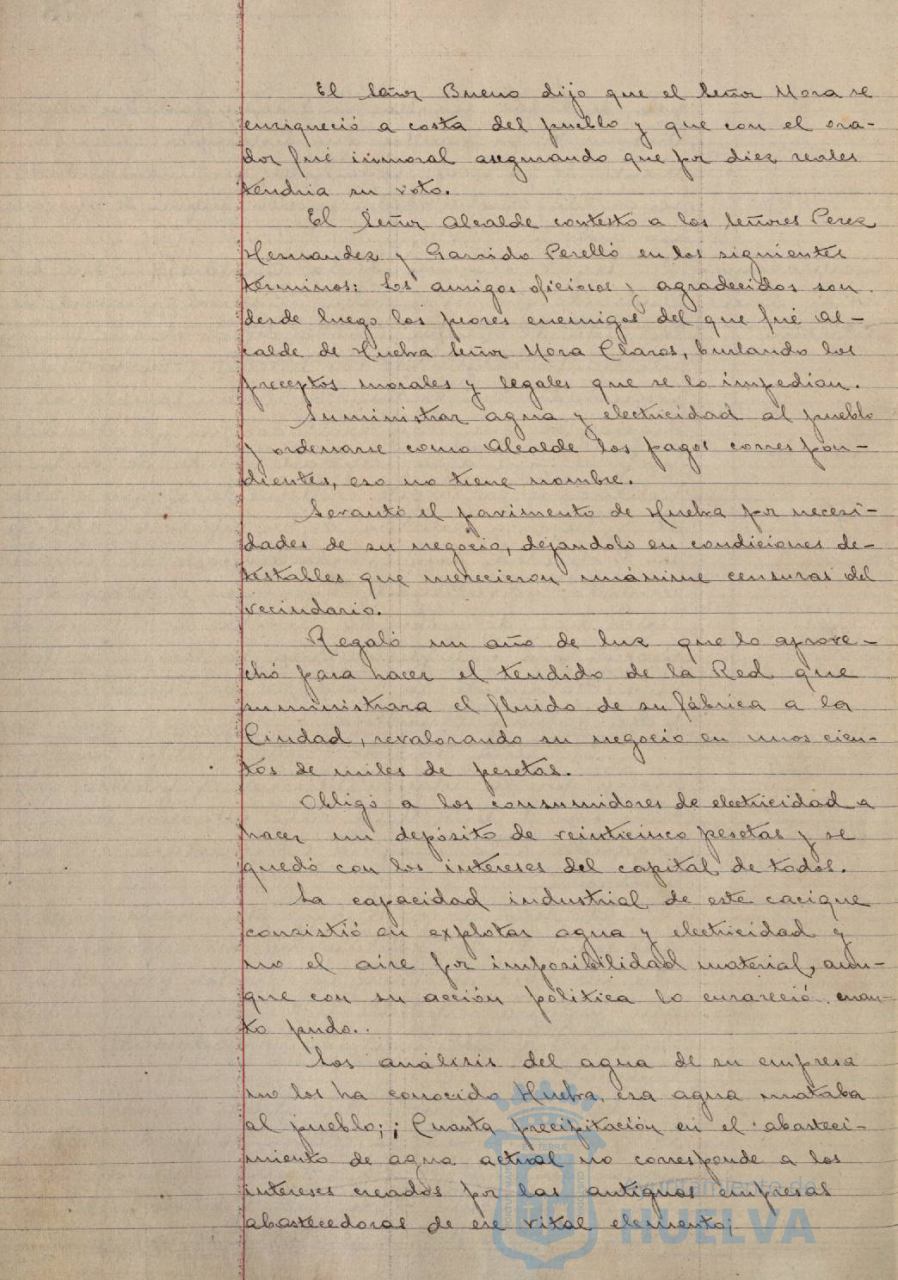 El Señor Bueno dijo que el Señor Mora se
enriqueció a costa del pueblo y que con el ora-
dor fué inmoral asegurando que por diez reales
tendria su voto.
El Señor Alcalde contestó a los Señores Perez
Hernandez y Garrido Perelló en los siguientes
términos: Los amigos oficiosos y agradecidos son
desde luego los peores enemigos del que fué Al-
calde de Huelva Señor Mora Claros, burlando los
preceptos morales y legales que se lo impedian.
Suministrar agua y electricidad al pueblo
y ordenarse como Alcalde los pagos correspon-
dientes, eso no tiene nombre.
Levantó el pavimento de Huelva por necesi-
dades de su negocio, dejandolo en condiciones de-
testables que merecieron unánime censuras del
vecindario.
Regaló un año de luz que lo aprove-
chó para hacer el tendido de la Red que
suministrara el fluido de su fábrica a la
Ciudad, revalorando su negocio en unos cien-
tos de miles de pesetas.
Obligó a los consumidores de electricidad a
hacer un depósito de veinticinco pesetas y se
quedó con los intereses del capital de todos.
La capacidad industrial de este cacique
consistió en explotar agua y electricidad y
no el aire por imposibilidad material, aun-
que con su acción politica lo enrareció cuan-
to pudo..
Los análisis del agua de su empresa
no los ha conocido Huelva, esa agua mataba
al pueblo; ¡Cuanta precipitación en el abasteci-
miento de agua actual no corresponde a los
intereses creados por las antiguas empresas
abastecedoras de ese vital elemento;
Ayuntamiento de
HUELVA